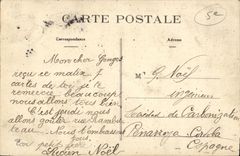 CARTE POSTALE
Correspondance
Adresse
5e
Mon cher Georges
reçu ce matin 7
cartes de toi, je te
remercie beaucoup
nous allons tous bien
C'est jeudi nous
allons goûter
leau. Nous t'embrassons
Ton petit frère
Lucien Noël
M G. Noël
ingénieur
Usines de Carbonisation
Penarroya
Espagne